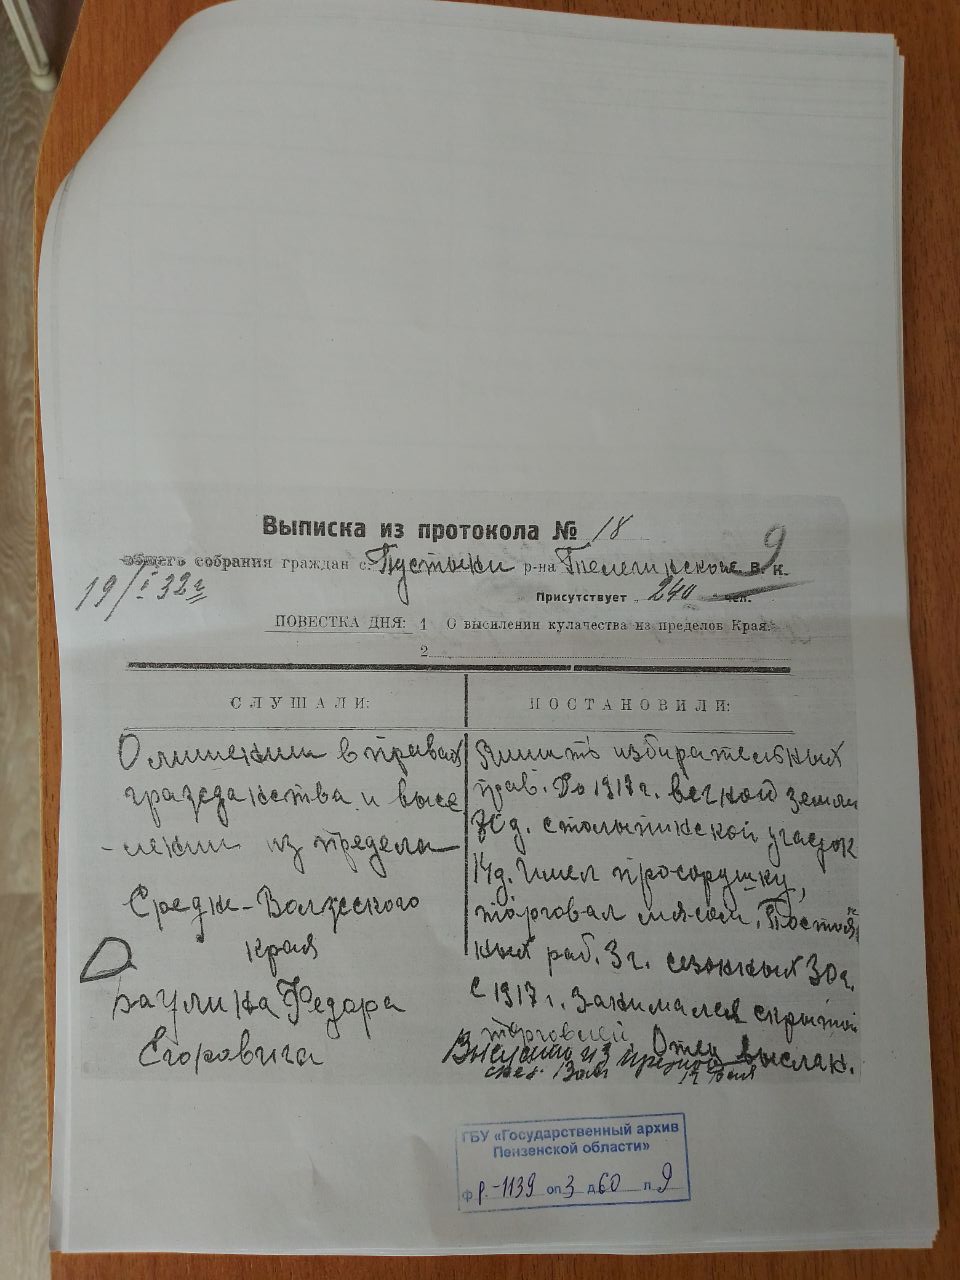 Выписка из протокола № 18
9
общего собрания граждан с. Пустыни р-на Телегинское в. к.
19/I 32 г
Присутствует 240 чел.
ПОВЕСТКА ДНЯ: 1 О высилении кулачества из пределов Края.
2
СЛУШАЛИ:
О лишении в правах
гражданства и высе
-лении из предела
Средн-Волжского
края
Федора
Егоровича
ПОСТАНОВИЛИ:
Лишить избирательных
прав. До 1917 г. вечной земли
д. столыпинской участок
14 д. Имел просорушку,
торговал мясом. Постоян
ных раб. 3 ч. сезонных 30 ч.
с 1917 г. занимался скрытой
торговлей. Отец выслан.
Выслать из предела
сред. Волж края
ГБУ «Государственный архив
Пензенской области»
ф р.-1139 оп 3 д 60 л 9